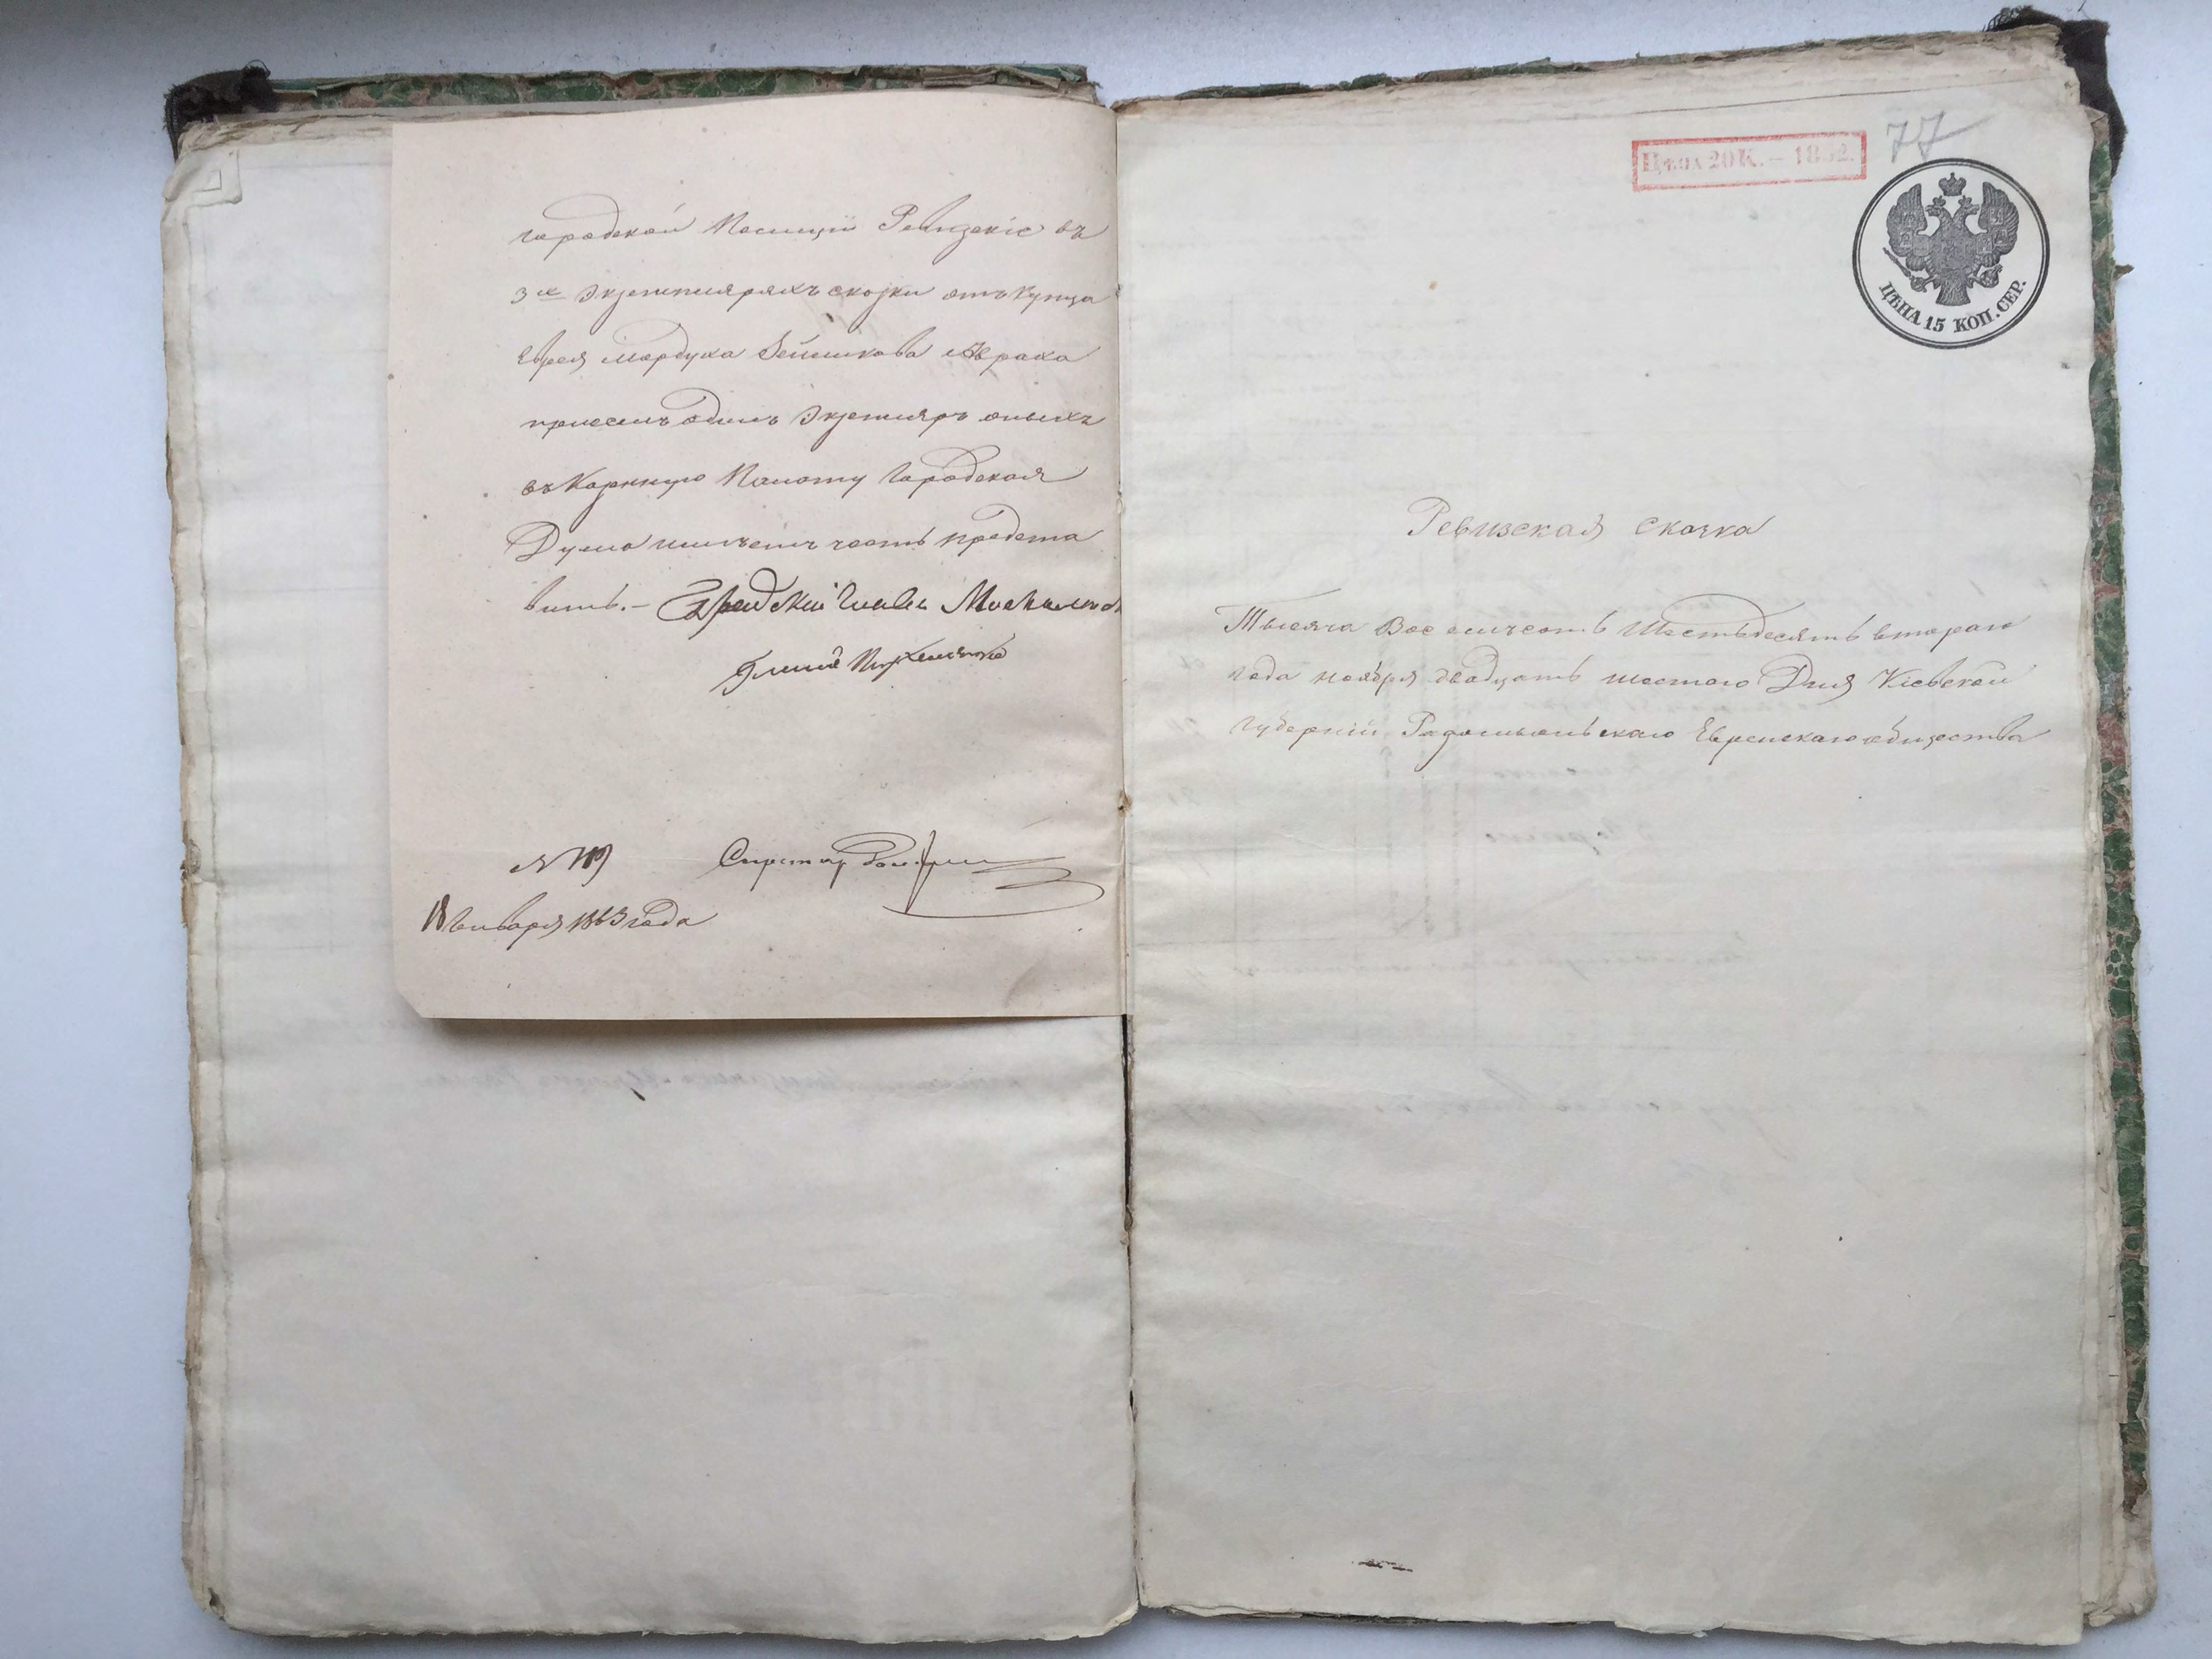 городской Полиціи Ревизскіе въ
3х экземплярахъ сказки отъ купца
Еврея Мордуха
при семъ одинъ Экземляръ оныхъ
въ Казенную Палату Городская
Дума имѣетъ честь предста
вить.– Городской Глава
Гласный
№
Секретарь
18 Января 1863 года
77
Цѣна 20 К. – 1862.
ЦѢНА 15 КОП. СЕР.
Ревизская Сказка
Тысяча Восемьсотъ Шестьдесятъ втораго
года ноября двадцать шестого Дня Кіевской
Губерніи Радомысльскаго Еврейскаго общества